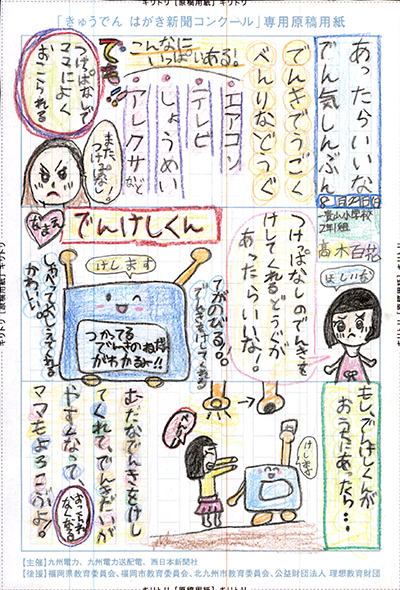 「きゅうでん はがき新聞コンクール」専用原稿用紙
あったらいいな
でん気しんぶん
8月29日
一貴山小学校
2年1組
高木百花
でんきでうごく
べんりなどうぐ
こんなに
いっぱいある!
エアコン
テレビ
しょうめい
アレクサなど
でも!!
つけっぱなしで
ママによく
おこられる
また、
つけっぱなし!
ほしいな
つけっぱなしのでんきを
けしてくれるどうぐが
あったらいいな!
なまえ
でんけしくん
けします
てがのびる。
でんきをけしてくれる
つかってる
でんきのねだん
がわかるよ!!
しゃべっておしえてくれる
かわいい。
もし、でんけしくんが
おうちにあったら…
けします
むだなでんきをけし
てくれて、でんきだいが
やすくなって
ママもよろこぶよ!
おこられ
なくなる
【主催】九州電力、九州電力送配電、西日本新聞社
【後援】福岡県教育委員会、福岡市教育委員会、北九州市教育委員会、公益財団法人 理想教育財団
キリトリ【原稿用紙】キリトリ